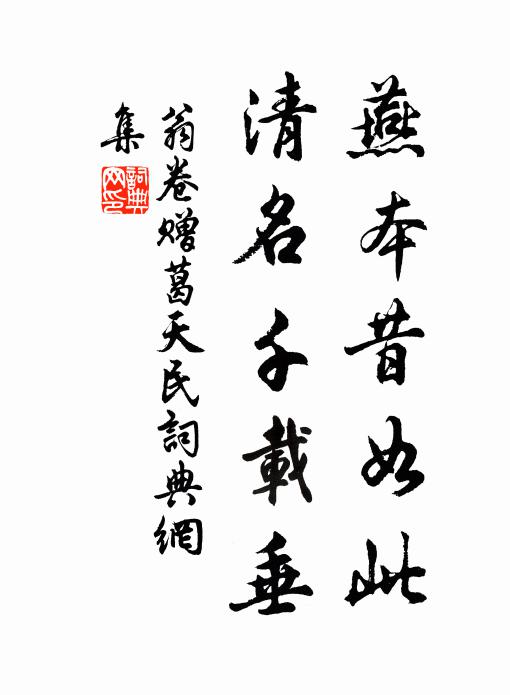 燕本昔如此
清名千載垂
翁卷贈葛天民詞典網
集
詞典
网印